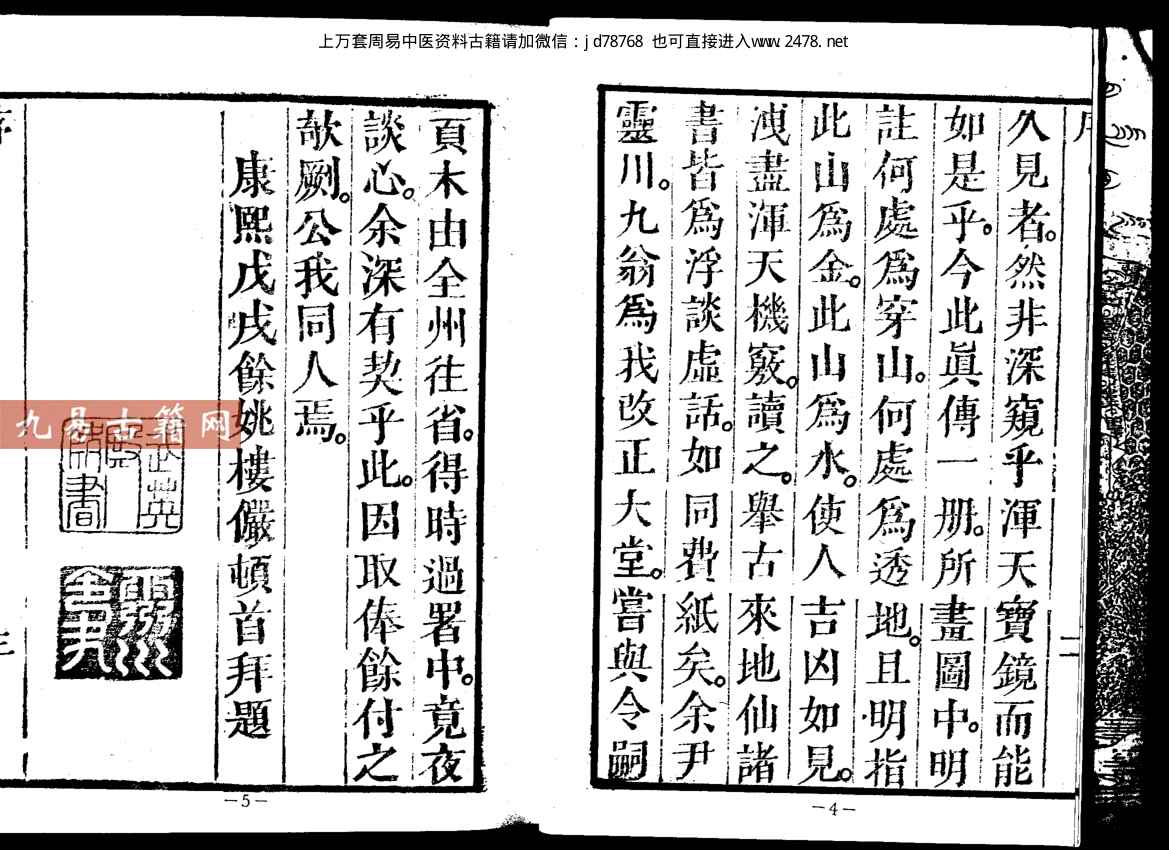 上万套周易中医资料古籍请加微信：jd78768 也可直接进入www.2478.net
久見者。然非深窺乎渾天寶鏡而能
如是乎。今此眞傳一册。所畫圖中。明
註何處爲穿山。何處爲透地。且明指
此山爲金。此山爲水。使人吉凶如見。
洩盡渾天機竅。讀之。舉古來地仙諸
書皆爲浮談虛話。如同費紙矣。余尹
靈川。九翁爲我改正大堂。嘗與令嗣
頁木由全州往省。得時過署中。竟夜
談心。余深有契乎此。因取俸餘付之
欹劂。公我同人焉。
康熙戊戌餘姚樓儼頓首拜題
九易古籍网
—4—
—5—